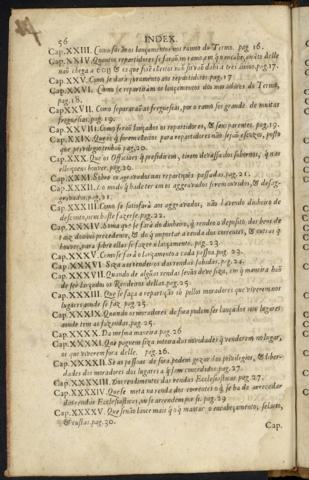 56
INDEX.
Cap.XXIII. Como se lançamentos no ramo do Termo. pag 16.
Cap.XXIV. Quantos repartidores se faraõ no ramo em
não chega a & os que forẽ eleitos não sirvaõ dahi a tres annos. pag. 17.
Cap.XXV. Como se dará juramento aos repartidores. pag. 17.
Cap.XXVI. Como se repartiràm os lançamentos dos moradores do Termo,
pag. 18.
Cap.XXVII. Como separaràõ as freguesias, por o ramo ser grande de muitas
freguesias. pag. 19.
Cap.XXVIII. Como seraõ lançados os repartidores, & seus parentes. pag. 19.
Cap.XXIX. Que os q forem eleitos para repartidores não sejaõ escusos, posto
que privilegios tenhaõ pag, 20.
Cap.XXX. Que os Officiaes q presidirem, tirem devassa dos sobornos, q nas
eleiçoens houver. pag. 20.
Cap.XXXI. Sobre os agravados nas repartições passadas. pag. 21.
Cap.XXXII. Do modo q hade ter em os aggravados serem ouvidos, & desag-
gravados, pag, 21.
Cap.XXXIII. Como se satisfará aos aggravados, não havendo dinheiro de
desconto, nem hoste fazerse. pag. 22.
Cap.XXXIV. Soma que se fará do dinheiro, q rendeo o deposito, dos bens de
raiz do anno precedente, & do q importa a renda das correntes, & outras q
houver, para sobre ellas se fazer o lançamento. pag. 23.
Cap.XXXV. Como se fará o lançamento a cada pessoa. pag. 23.
Cap.XXXVI. Sizas accidentaes das rendas sabidas. pag. 24.
Cap.XXXVII. Quando de algũas rendas senão deve siza, em q maneira haõ
de ser lançados os Rendeiros dellas. pag. 25.
Cap.XXXIII. Que se faça a repartição só pellos moradores que viverem nos
lugares aonde se faz. pag. 25.
Cap.XXXIX. Quando os moradores de fora podem ser lançados nos lugares
aonde tem as fazendas. pag. 25.
Cap.XXXX. Da mesma maneira pag. 26
Cap.XXXXI. Que paguem siza inteira das novidades q venderem no lugar,
os que viverem fora delle. pag. 26.
Cap.XXXXII. Si as pessoas de fora podem gozar dos privilegios, & liber-
dades dos moradores dos lugares a q sam concedidos. pag. 27.
Cap.XXXXIII. Encerramentos das rendas Ecclesiasticas pag. 27.
Cap.XXXXIV. Que se meta na renda das correntes o q se ha de arrecadar
das rendas Ecclesiasticas, ou se arrendem por si. pag. 29
Cap.XXXXV. Que senão lance mais q o q montar o encabeçamento, selario,
& custas. pag. 30.
Cap.